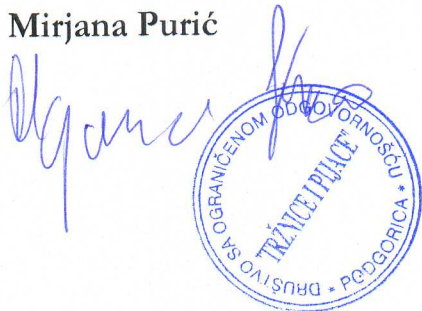 Mirjana Purić
DRUŠTVO SA OGRANIČENOM ODGOVORNOŠĆU * PODGORICA *
"TRŽNICE I PIJACE"